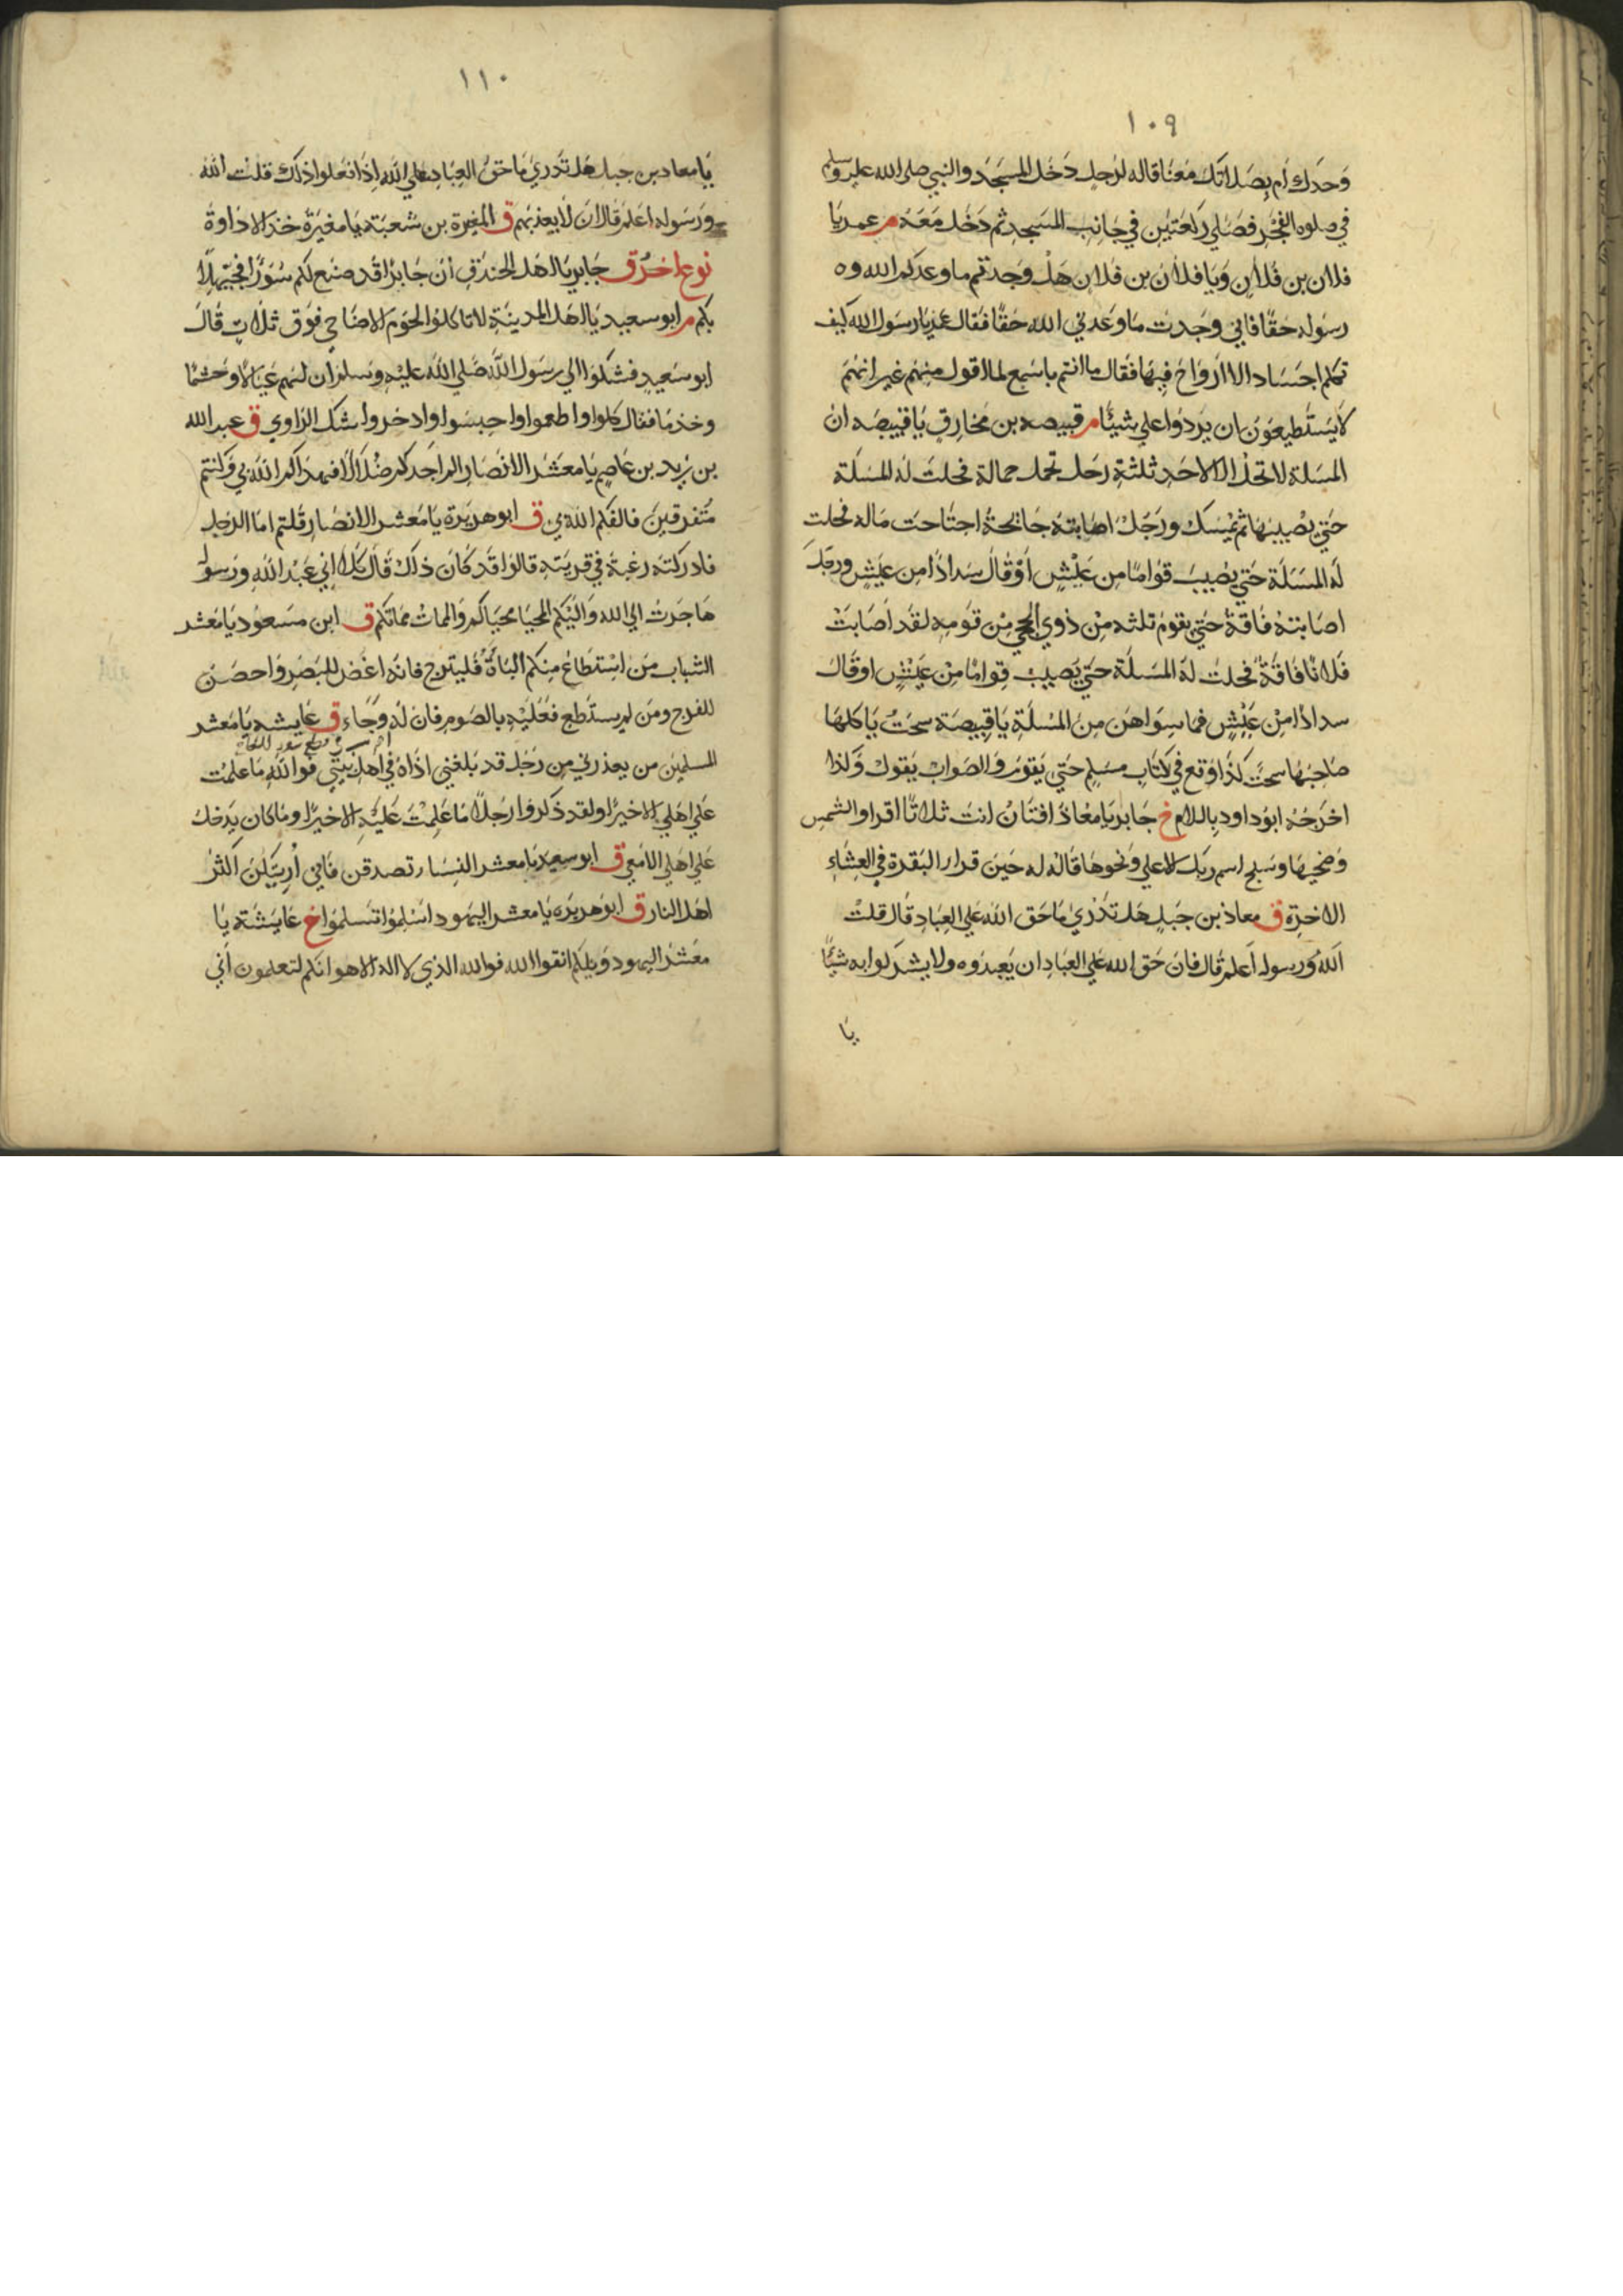 ١٠٩
وَحدَك أم بِصَلاتك مَعَنَا قاله لرَجلٍ دَخل المسجَدَ والنبي صلى الله عليه وسلم
في صلوه الفجْر فصَلي ركعَتَين في جَانِب المسَجدِ ثم دَخَل مَعَهُ م عمر يَا
فلان بن فلانٍ وَيَا فلان بن فلانٍ هَلْ وَجدتم ما وعدكم الله و ه
رسُوله حَقًّا فاني وجَدت مَا وعَدني الله حَقًّا فقال عمر يارسَول الله كيف
تكلم اجسَاد الا ارَواحَ فيهَا فقال ما انتم باسْمع لما اقول منهم غير انهُمَ
لاَ يَسْتَطيعَوُن ان يردَوُا علي شيئًا م قبيصه بن مخارقٍ يَا قبيصَه ان
المسَلة لا تحلُ الا لاحَدِ ثلثةِ رَجل تحمل حمالة فحلتَ لهُ المسَلَة
حَتي يصْيبهَا ثم يمْسِك ورَجلْ اصَابتهُ جَائحةُ اجتَاحَت مَاله فحلتِ
لهَ المسَلَة حَتي يصْيبَ قوَامًا مِن عَيْشٍ أوْقال سِدادًا مِن عَيشٍ ورجل
اصَابتهُ فاقةُ حَتي يقوَم ثلثه مِنْ ذوي الحجي مِن قومِهِ لقَد اَصَابَتْ
فلانًا فاقةُ فحلتُ لهَ المسَلَة حَتي يَصيبْ قِوامًا مِنْ عَيْشٍ او قالَ
سدادًا مِنْ عَيْشٍ فما سِوَاهن مِنَ المسْلةِ يَا قبِيصَة سحتٌ يَا كلهَا
صَاحِبهَا سحتًا كذا وَقع في كتَابِ مسَلمٍ حَتي يَقومَ وَالصَواب يَقول وَكذا
اخرَجَهُ ابوُ داود باللام خ جَابر يَا معُاذ افتَانٌ انتَ ثلاثًا اقرا والشمسِ
وَضحَيهَا وسَبح اسم ربك الاعلي وَنحوهَا قالهْ له حَينَ قرا البَقرَة في العِشَاءِ
الاخرَة ق معاذ بن جَبلٍ هَل تَدْري مَا حَق الله علي العِبَاد قَال قلتُ
الله وَرسوله اَعلم قَال فانَ حَق الله عَلي العبَادِ ان يَعبدُوه ولا يشركوا به شيئًا
يَا
١١٠
يَا معاد بن جَبل هَل تَدري مَا حَقُ العِبَادِ علي الله اِذَا فعَلوا ذلكَ قلت الله
ورَسَوله اعلمَ قال ان لاَ يعذبهم ق المغيرة بن شعبَة يَا مغيَرَة خذ الادَاوةَ
نوع اخرُ ق جَابر يَا اهَل الخندَقِ انَ جَابرًا قد صَنع لكم سُؤرًا فحَيهلاً
بكم م ابو سعيد يَا اهَل المدينَةِ لا تاكلوُا لحوَم الاضَاحي فوْق ثلاثٍ قالَ
ابو سَعيدٍ فشكَوا الي رسَول الله صَلي الله عليْهِ وسَلم ان لهَم عيَالاً وَحشمًا
وخدَمًا فقال كلوا واطعموا واحبِسَوا وادخروا شك الراوي ق عبد الله
بن زيد بن عَاصمٍ يَا معَشَر الانصَارِ الم اجَدكم ضُلالاً فهدَاكم الله بي وَكنتم
مُتفرقينَ فالفكم الله بي ق ابو هريَرة يَا مَعشر الانصَار قلتم امَا الرَجل
فادركته رغبَة في قريَتهِ قالوا قدَ كَانَ ذلك قالَ كلا اني عَبْد اللهِ ورَسوله
هَاجَرتُ الي الله وَاليْكم المحيَا محيَاكم وَالممات مماتكم ق ابن مسَعوُد يَا معَشر
الشباب مَن اسْتطَاعَ مِنكم البَاةَ فليتزج فانه اغضَ للبَصَرِ وَاحصَنُ
للفرج ومَن لم يستَطع فعَليْهِ بالصَوم فان لهَ وَجَاءٌ ق عَايشه يَا مَعشر
المسلمينَ من يعذرني مِن رَجل قد بَلغني اذَاهُ في اَهل بَيتي فوالله مَا علمُت
عَلي اهَلي الاخيرًا ولقد ذكروا رَجلاً مَا عَلمْت عَليْهِ الا خَيرًا ومَا كان يَدخلُ
عَلي اهَلي الامَعي ق ابو سعِيد يَا معشر النسَاء تصدقن فَاني اُريتكنَ اكثرُ
اهل النار ق ابوَ هريَره يَا معشر اليهَود اسْلِموُا تسَلموَا خ عَايشَة يَا
معَشرَ اليهود وَيلكم اتقوا الله فوالله الذي لا اله الا هو انكم لتعلمون اني